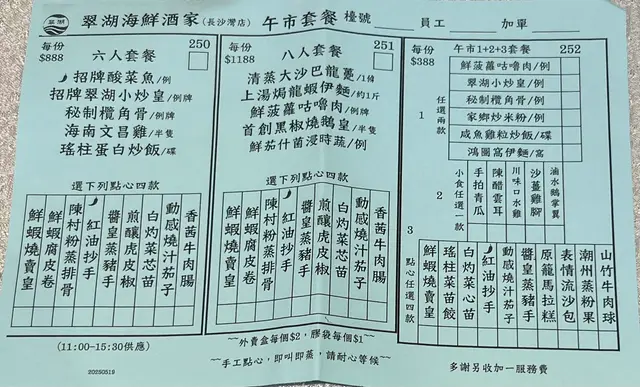 翠湖
翠湖海鮮酒家(長沙灣店) 午市套餐 檯號 員工 加單
每份 $888 六人套餐 250
招牌酸菜魚/例
招牌翠湖小炒皇/例牌
秘制欖角骨/例牌
海南文昌雞/半隻
瑤柱蛋白炒飯/碟
選下列點心四款
鮮蝦燒賣皇
鮮蝦腐皮卷
陳村粉蒸排骨
紅油抄手
醬皇蒸豬手
煎釀虎皮椒
白灼菜芯苗
動感燒汁茄子
香茜牛肉腸
(11:00-15:30供應)
20250519
每份 $1188 八人套餐 251
清蒸大沙巴龍躉/1條
上湯焗龍蝦伊麵/約1斤
鮮菠蘿咕嚕肉/例牌
首創黑椒燒鵝皇/半隻
鮮茄什菌浸時蔬/例
選下列點心四款
鮮蝦燒賣皇
鮮蝦腐皮卷
陳村粉蒸排骨
紅油抄手
醬皇蒸豬手
煎釀虎皮椒
白灼菜芯苗
動感燒汁茄子
香茜牛肉腸
~~外賣盒每個$2，膠袋每個$1~~
~~手工點心，即叫即蒸，請耐心等候~~
每份 $388 午市1+2+3套餐 252
1 任選兩款
鮮菠蘿咕嚕肉/例
翠湖小炒皇/例
秘制欖角骨/例
家鄉炒米粉/例
咸魚雞粒炒飯/碟
鴻圖窩伊麵/窩
2
小食任選一款
手拍青瓜
陳醋雲耳
川味口水雞
沙薑雞腳
滷水鵝掌翼
3
點心任選四款
鮮蝦燒賣皇
瑤柱菜苗餃
白灼菜心苗
紅油抄手
動感燒汁茄子
醬皇蒸豬手
原籠馬拉糕
表情流沙包
潮州蒸粉果
山竹牛肉球
多謝另收加一服務費